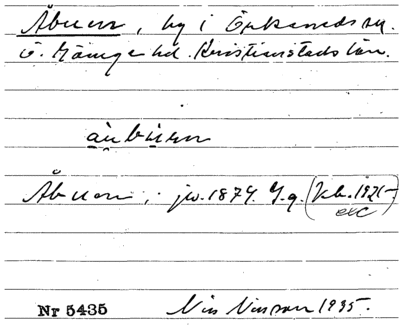 Åbuen, by i Örkeneds sn.
Ö. Göinge hd. Kristianstads län.
åubuen
Åbuen, jw. 1874. G.q. (Kb. 1921-
etc
Nr 5435 Nils Nilsson 1935.